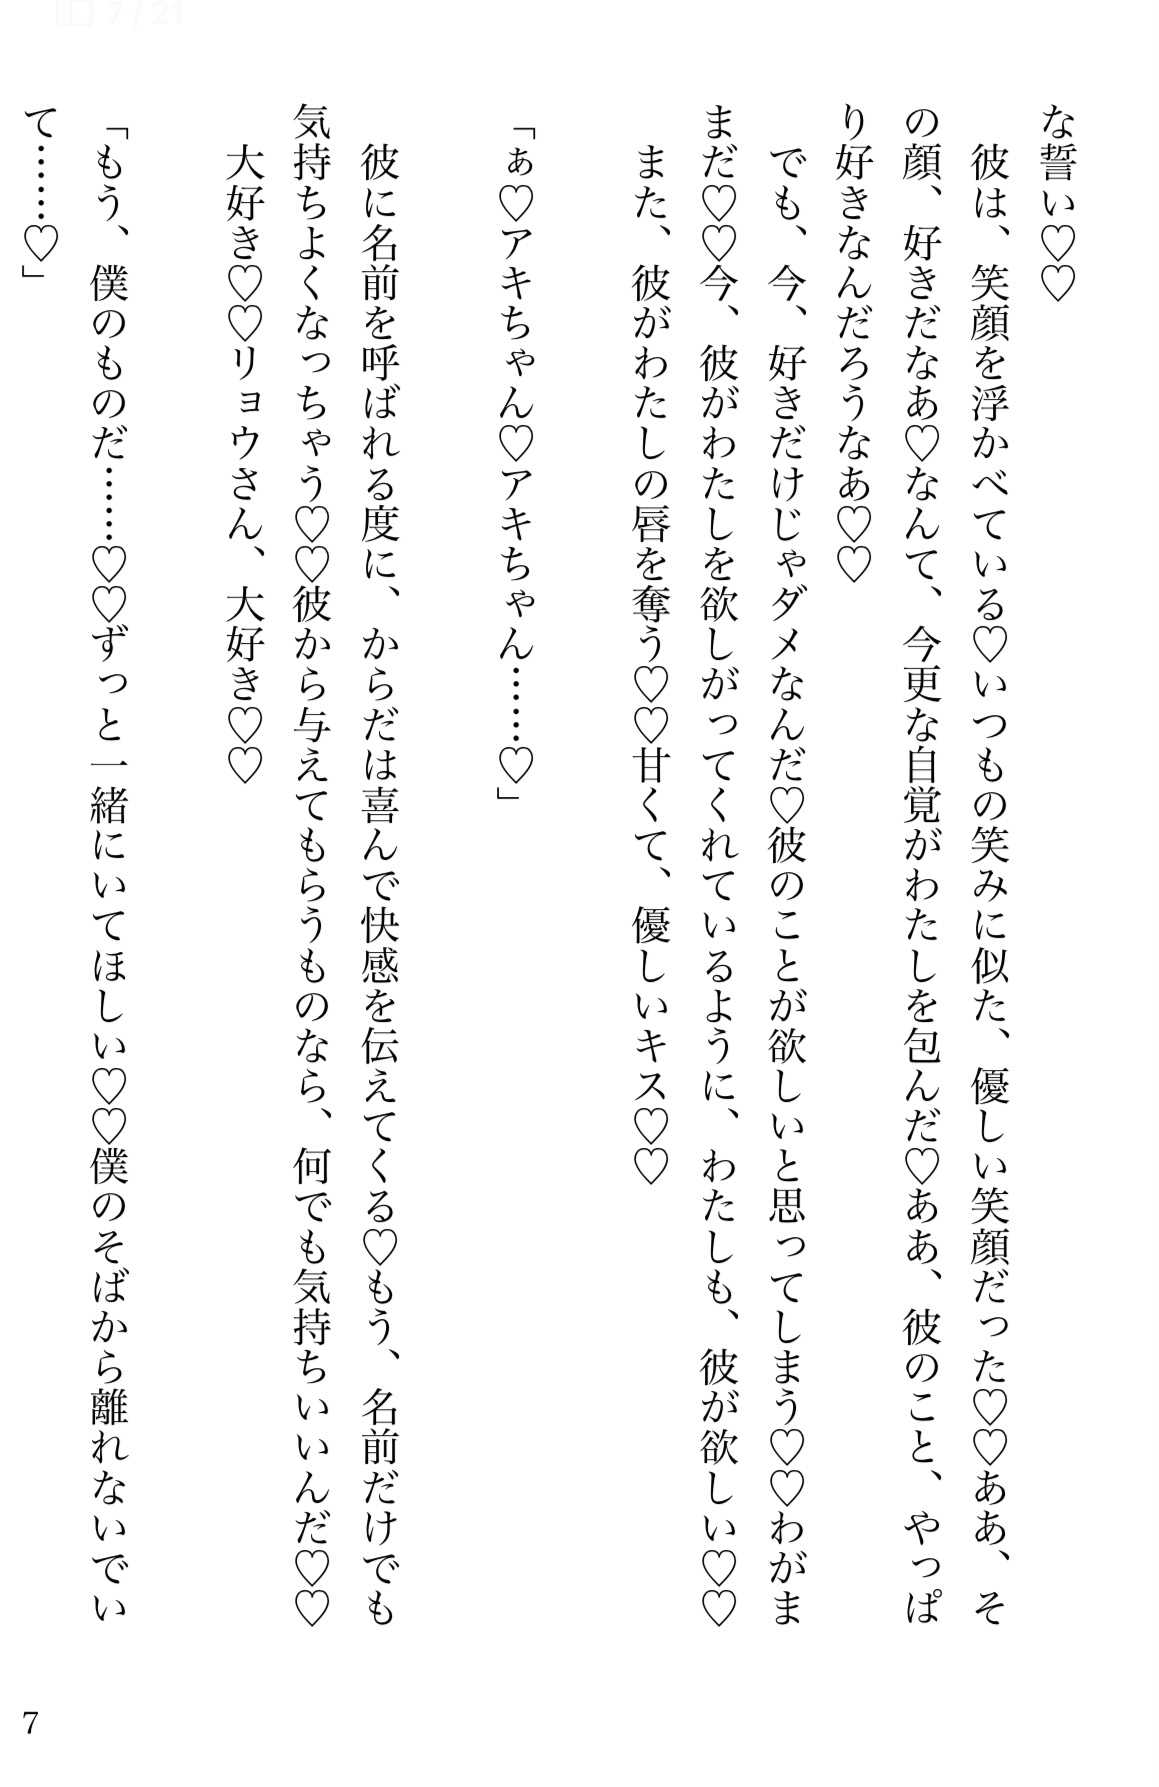 7 / 21
な誓い♡♡
　彼は、笑顔を浮かべている♡いつもの笑みに似た、優しい笑顔だった♡♡ああ、そ
の顔、好きだなあ♡なんて、今更な自覚がわたしを包んだ♡ああ、彼のこと、やっぱ
り好きなんだろうなあ♡♡
　でも、今、好きだけじゃダメなんだ♡彼のことが欲しいと思ってしまう♡♡わがま
まだ♡♡今、彼がわたしを欲しがってくれているように、わたしも、彼が欲しい♡♡
　また、彼がわたしの唇を奪う♡♡甘くて、優しいキス♡♡
「ぁ♡アキちゃん♡アキちゃん……♡」
　彼に名前を呼ばれる度に、からだは喜んで快感を伝えてくる♡もう、名前だけでも
気持ちよくなっちゃう♡♡彼から与えてもらうものなら、何でも気持ちいいんだ♡♡
　大好き♡♡リョウさん、大好き♡♡
「もう、僕のものだ……♡♡ずっと一緒にいてほしい♡♡僕のそばから離れないでい
て……♡」
7